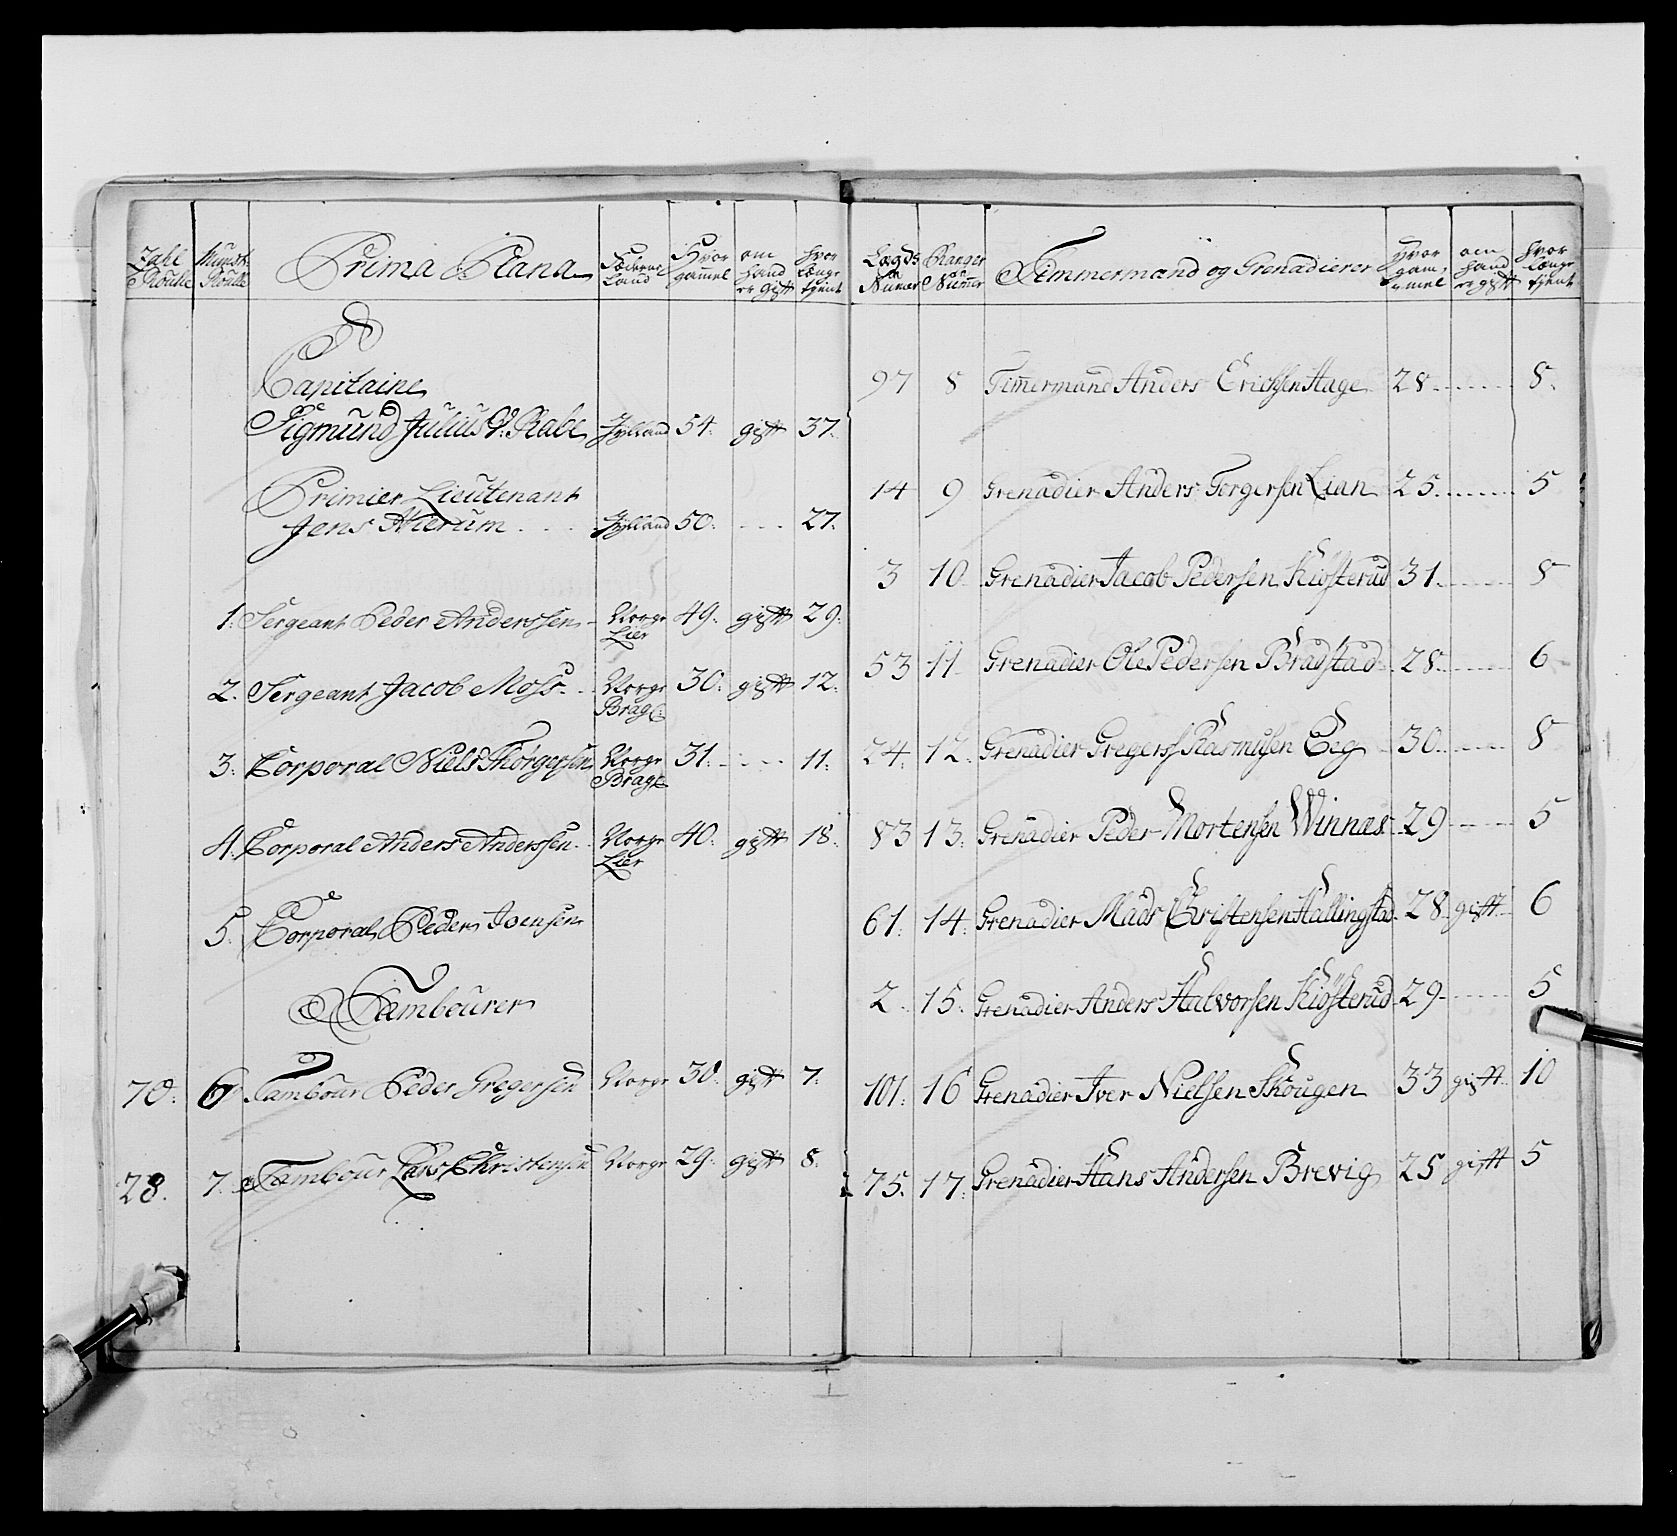 Zahl Roulle Munst: Roulle Prima Plana Föderne Land Hvor gammel om hand er gift hvor længe tjent
Capitaine
Sigmund Julius V: Rabe Jylland 54. gift 37.
Primier Lieutenant
Jens Hierum Jylland 50. 27.
1. Sergeant Peder Anderssen Norge Lier 49. gift 29.
2. Sergeant Jacob Moss Norge Brag: 30. gift 12.
3. Corporal Niels Thorgersen Norge Brag: 31. 11.
4. Corporal Anders Anderssen Norge Lier 40. gift 18.
5. Corporal Peder Joensen
Tambourer
70. 6 Tambour Peder Gregersen Norge 30. gift 7.
28. 7. Tambour Lars Christensen Norge 29. gift 8.
Lægds Numer Ranger Numer Timmermand og Grenadierer Hvor gammel om hand er gift hvor længe tjent
97 8 Timermand Anders Erichsen Hage 28 8.
14 9 Grenadier Anders Torgersen Lian 25 5
3 10 Grenadier Jacob Pedersen Kiösterud 31 8
53 11 Grenadier Ole Pedersen Bradstad 28 6
24. 12. Grenadier Gregers Rasmusen Eeg 30 8
83 13. Grenadier Peder Mortensen Winnæs 29 5
61. 14. Grenadier Mads Christensen Hallingstad 28 gift 6
2 15. Grenadier Anders Halvorsen Kiösterud 29 5
101. 16 Grenadier Iver Nielsen Skougen 33 gift 10
75. 17. Grenadier Hans Andersen Brevig 25 gift 5